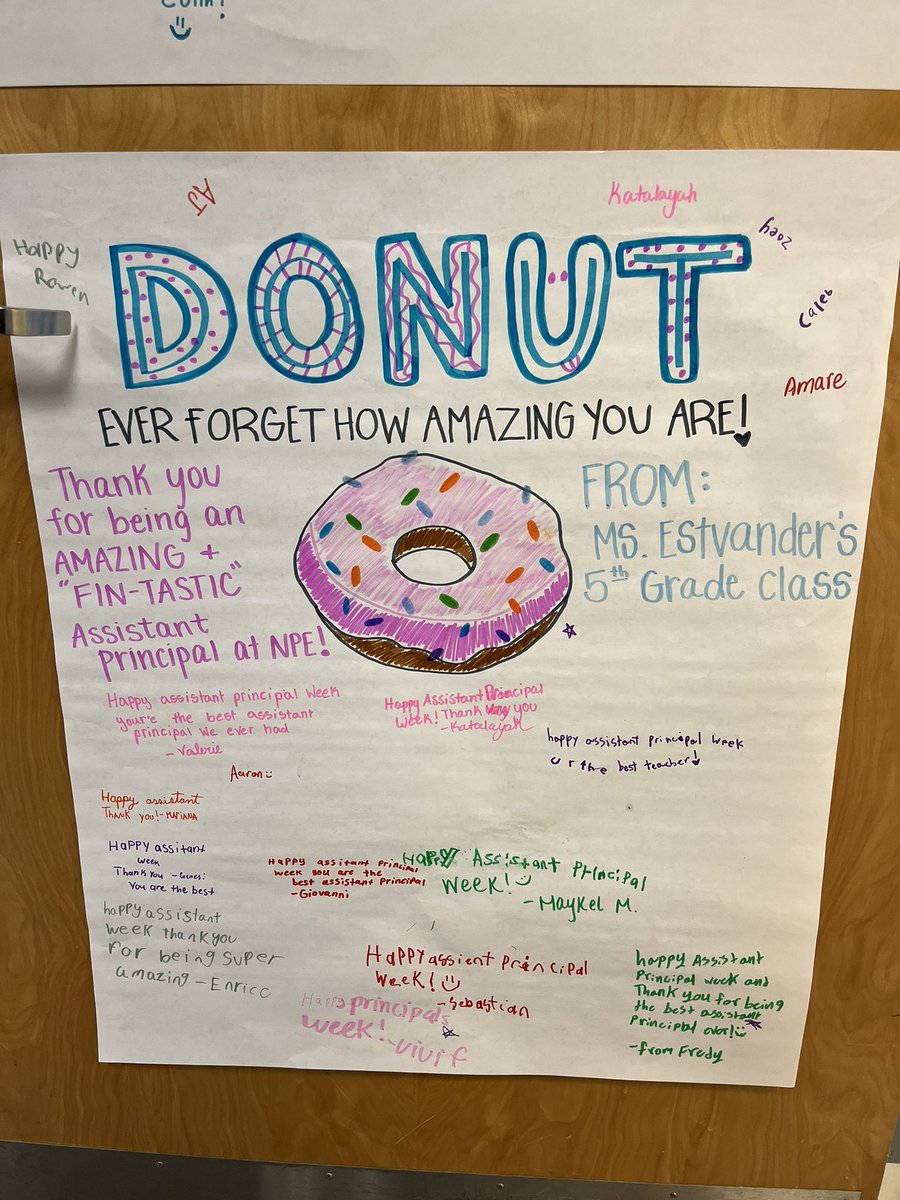 AJ
Katalayah
Zoey
Happy
Raven
Caleb
Amare
DONUT
EVER FORGET HOW AMAZING YOU ARE!
Thank you
for being an
AMAZING +
"FIN-TASTIC"
Assistant
principal at NPE!
FROM:
MS. Estvander's
5th Grade Class
Happy assistant principal week
your'e the best assistant
principal we ever had
- Valerie
Happy Assistant Principal
Week! Thank you
- Katalayah
happy assistant principal week
u r the best teacher!
Aaron :)
Happy assistant
Thank you! - Mariana
Happy assitant
week
Thank you
You are the best
Happy assitant principal
week you are the
best assistant principal
- Giovanni
Happy Assistant Principal
week! :)
- Maykel M.
happy assistant
week thank you
for being super
amazing - Enrico
Happy assient principal
week! :)
- Sebastian
Happy principals
week! - vivi f
happy Assistant
Principal week and
Thank you for being
the best assistant
Principal
- from Fredy